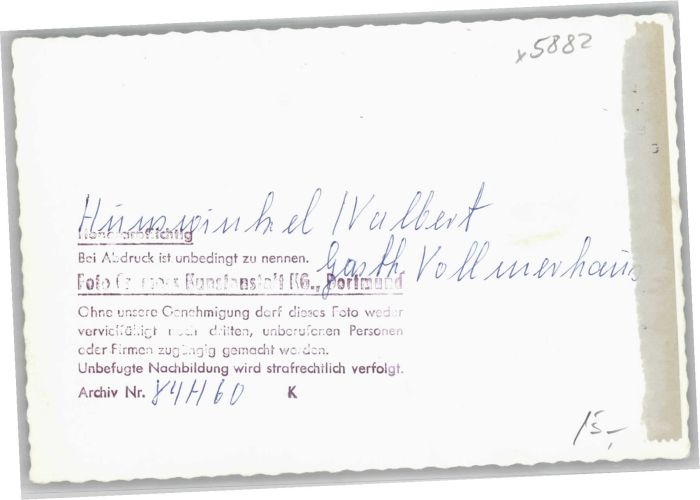 x5882
Hunswinkel / Valbert
Honorarpflichtig
Bei Abdruck ist unbedingt zu nennen.
Gasth. Vollmerhaus
Foto Kunstanstalt KG., Dortmund
Ohne unsere Genehmigung darf dieses Foto weder
vervielfältigt noch dritten, unberufenen Personen
oder Firmen zugängig gemacht werden.
Unbefugte Nachbildung wird strafrechtlich verfolgt.
Archiv Nr. 84H60 K
15,-